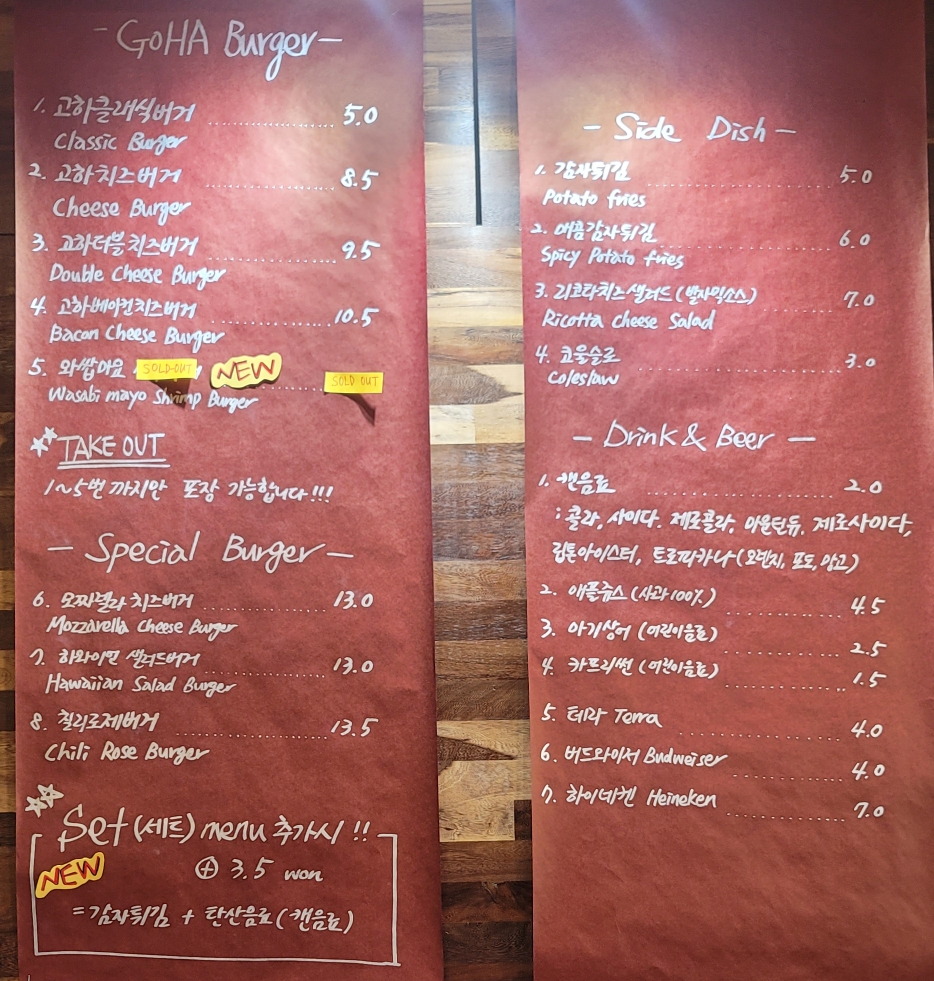 - GoHA Burger -
1. 고하클래식버거 5.0
Classic Burger
2. 고하치즈버거 8.5
Cheese Burger
3. 고하더블치즈버거 9.5
Double Cheese Burger
4. 고하베이컨치즈버거 10.5
Bacon Cheese Burger
5. 와쌉마요 SOLD-OUT NEW SOLD OUT
Wasabi mayo Shrimp Burger
TAKE OUT
1~5번 까지만 포장 가능합니다!!!
- Special Burger -
6. 모짜렐라치즈버거 13.0
Mozzarella Cheese Burger
7. 하와이안 샐러드버거 13.0
Hawaiian Salad Burger
8. 칠리로제버거 13.5
Chili Rose Burger
Set(세트) menu 추가시!!
NEW ⊕ 3.5 won
= 감자튀김 + 탄산음료(캔음료)
- Side Dish -
1. 감자튀김 5.0
Potato fries
2. 매콤감자튀김 6.0
Spicy Potato fries
3. 리코타치즈샐러드(발사믹소스) 7.0
Ricotta Cheese Salad
4. 코울슬로 3.0
Coleslaw
- Drink & Beer -
1. 캔음료 2.0
: 콜라, 사이다, 제로콜라, 마운틴듀, 제로사이다,
립톤아이스티, 트로피카나(오렌지, 포도, 망고)
2. 애플쥬스(사과100%) 4.5
3. 아기상어(어린이음료) 2.5
4. 카프리썬(어린이음료) 1.5
5. 테라 Terra 4.0
6. 버드와이서 Budweiser 4.0
7. 하이네켄 Heineken 7.0